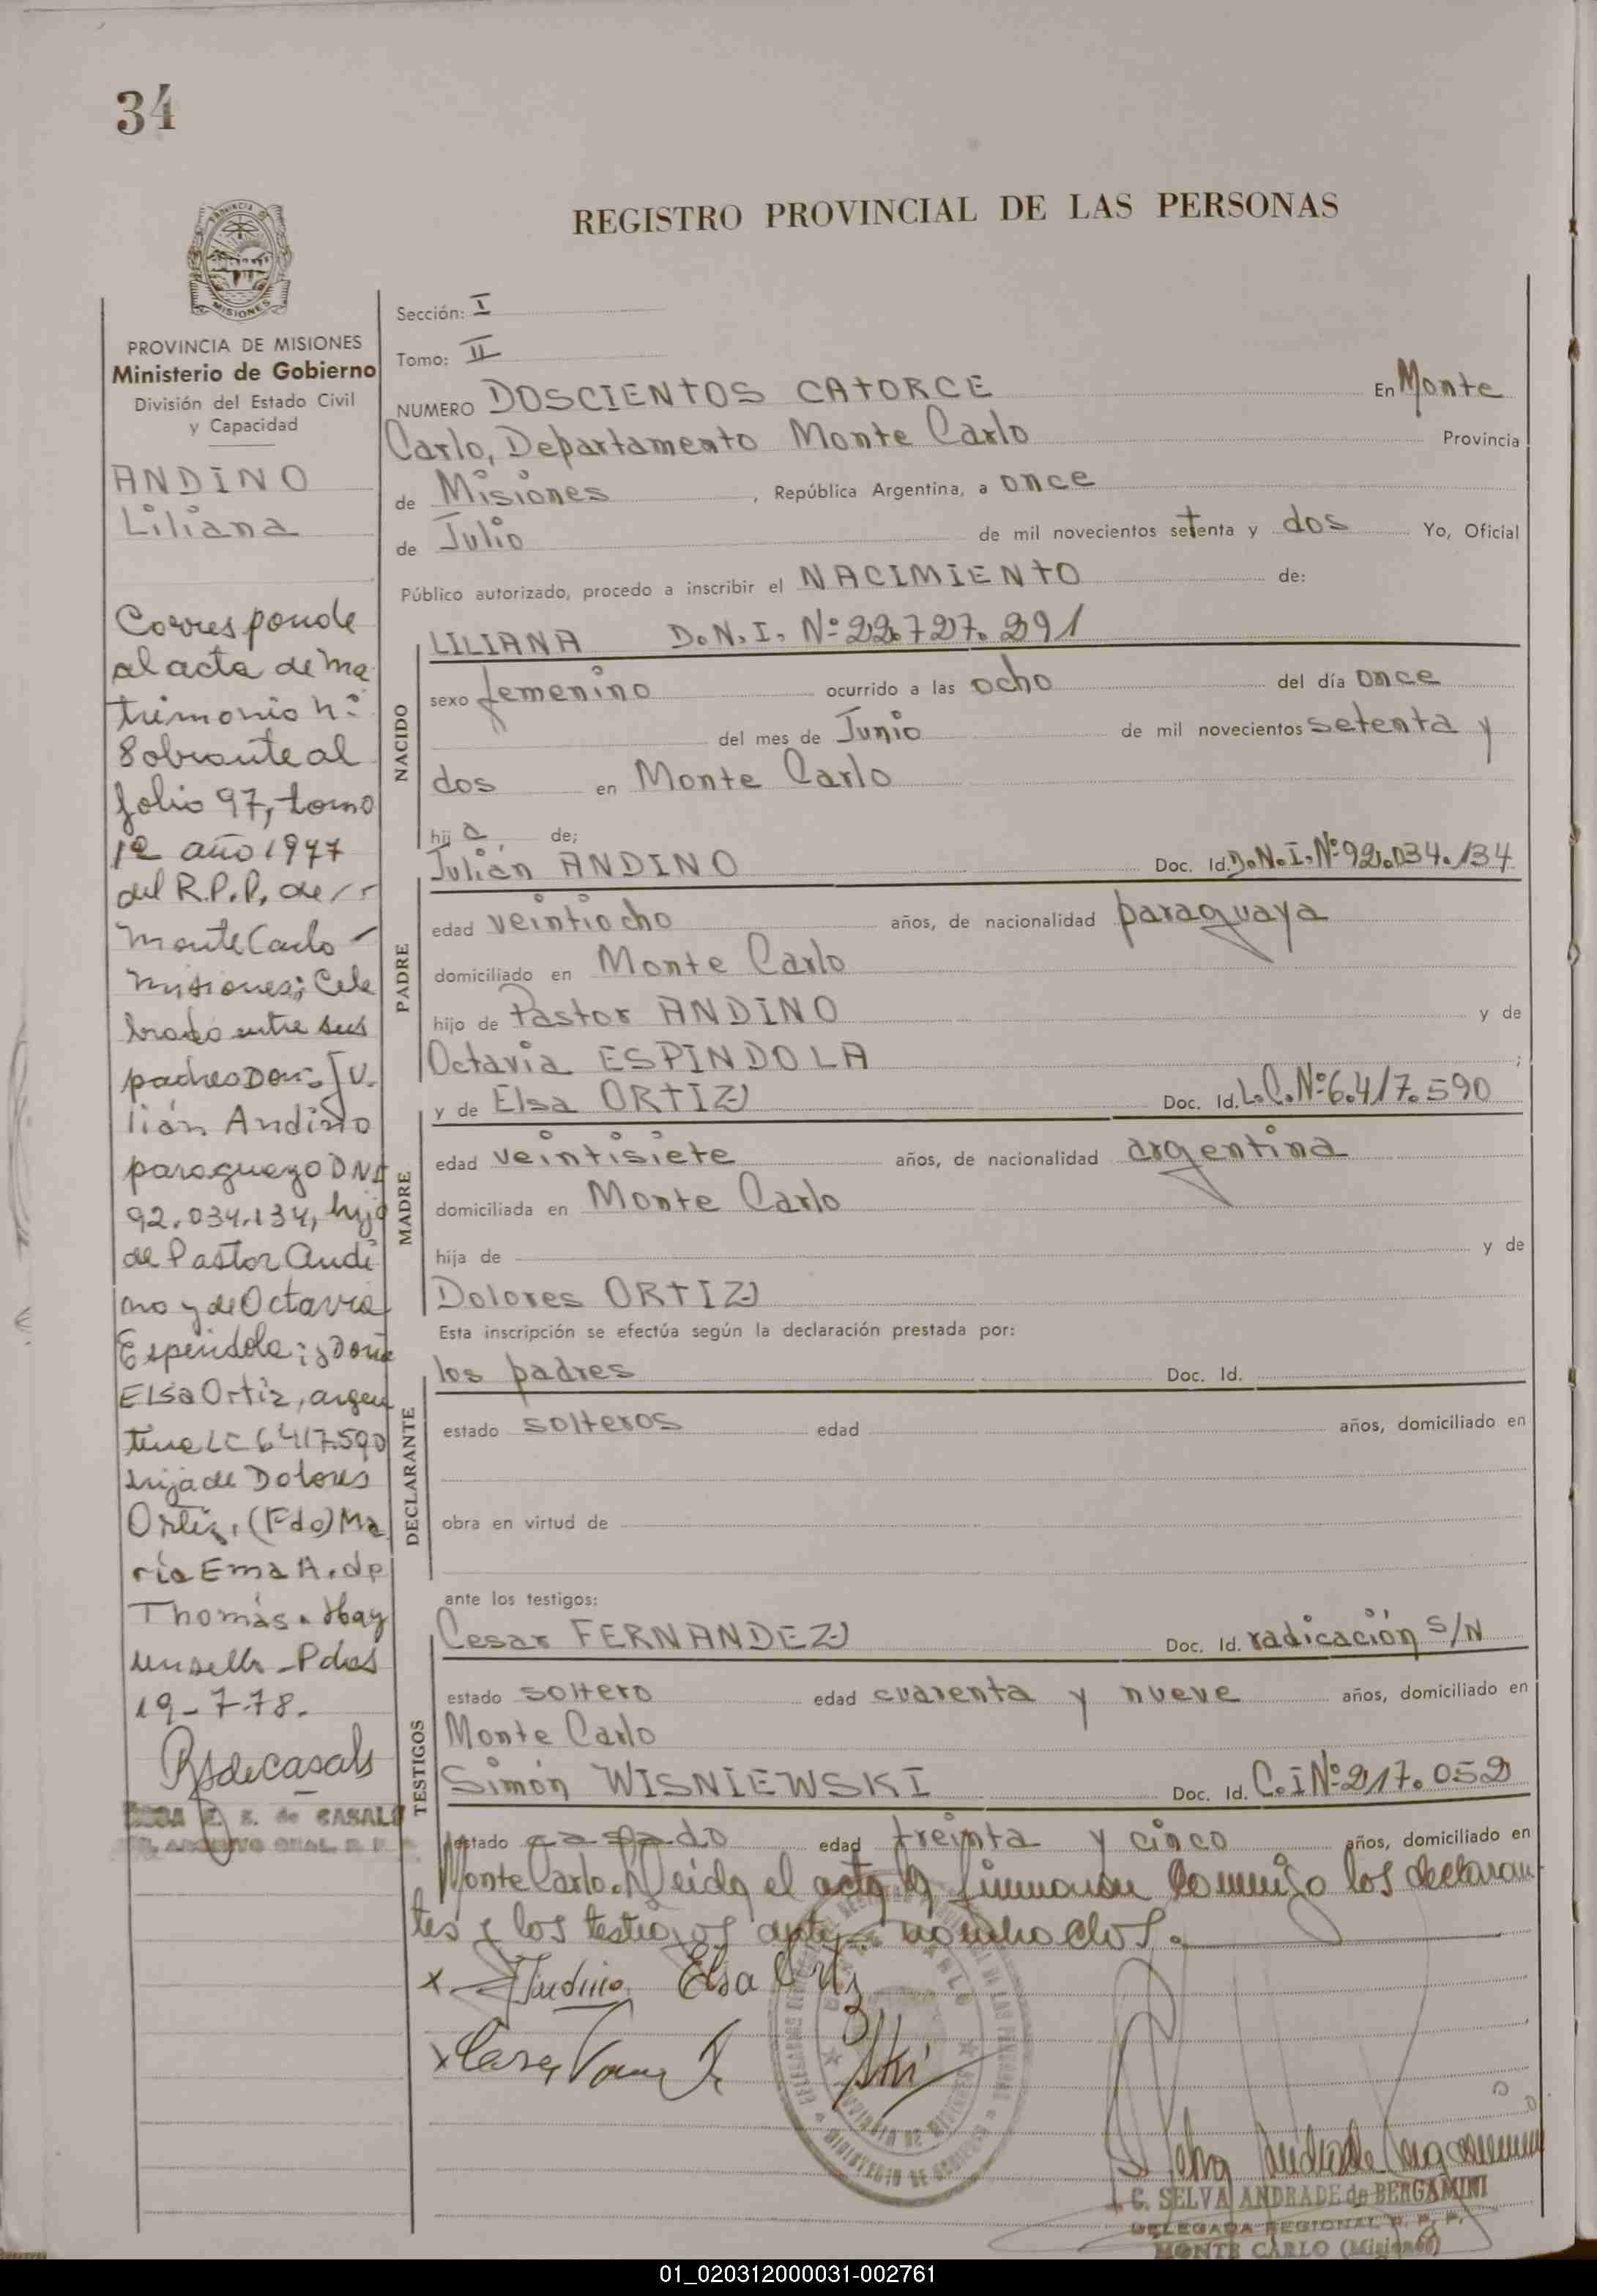 34
REGISTRO PROVINCIAL DE LAS PERSONAS
PROVINCIA DE MISIONES
Ministerio de Gobierno
División del Estado Civil
y Capacidad
ANDINO
Liliana
Corresponde
al acta de Ma
trimonio Nº
8 obrante al
folio 97, tomo
1º año 1977
del R.P.P. de
Monte Carlo -
Misiones; Cele
brado entre sus
padres Don: Ju
lián Andino
paraguayo DNI
92.034.134, hijo
de Pastor Andi
no y de Octavia
Espindola; y Doña
Elsa Ortiz, argen
tina LC 6417.590
hija de Dolores
Ortiz, (Fdo) Ma
ría Ema A. de
Thomás. Hay
un sello - Pdas
19-7-78.
RSdecasals
E. S. de CASALS
Sección: I
Tomo: II
NUMERO DOSCIENTOS CATORCE En Monte
Carlo, Departamento Monte Carlo Provincia
de Misiones, República Argentina, a once
de Julio de mil novecientos setenta y dos Yo, Oficial
Público autorizado, procedo a inscribir el NACIMIENTO de:
NACIDO
LILIANA D.N.I. Nº 22.727.291
sexo femenino ocurrido a las ocho del día once
del mes de Junio de mil novecientos setenta y
dos en Monte Carlo
hija de;
PADRE
Julián ANDINO Doc. Id. D.N.I. Nº 92.034.134
edad veintiocho años, de nacionalidad paraguaya
domiciliado en Monte Carlo
hijo de Pastor ANDINO y de
Octavia ESPINDOLA ;
MADRE
y de Elsa ORTIZ Doc. Id. L.C. Nº 6.417.590
edad veintisiete años, de nacionalidad argentina
domiciliada en Monte Carlo
hija de y de
Dolores ORTIZ
Esta inscripción se efectúa según la declaración prestada por:
DECLARANTE
los padres Doc. Id.
estado solteros edad años, domiciliado en
obra en virtud de
ante los testigos:
TESTIGOS
Cesar FERNANDEZ Doc. Id. radicación S/N
estado soltero edad cuarenta y nueve años, domiciliado en
Monte Carlo
Simón WISNIEWSKI Doc. Id. C.I Nº 217.052
estado casado edad treinta y cinco años, domiciliado en
Monte Carlo. Leida el acta la firmaron conmigo los declaran
tes y los testigos ante nombrados.
x JAndino Elsa Ortiz
C. SELVA ANDRADE de BERGAMINI
DELEGADA REGIONAL R. P. P.
MONTE CARLO (Misiones)
01_020312000031-002761